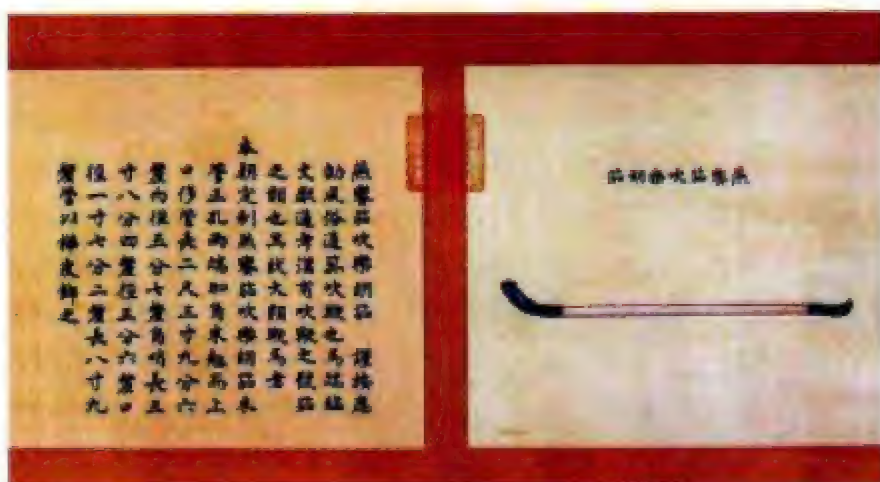 燕饗笳吹樂胡笳
燕饗笳吹樂胡笳　謹按應
劭風俗通笳吹鞭也馬端臨
文獻通考漢有吹鞭之號笳
之類也其狀大類鞭馬者
本朝定制燕饗笳吹樂胡笳木
管三孔兩端加角末翹而上
口哆管長二尺三寸九分六
釐內徑五分七釐角哨長三
寸八分四釐徑五分六釐口
徑一寸七分二釐長八寸九
釐管以樺皮飾之